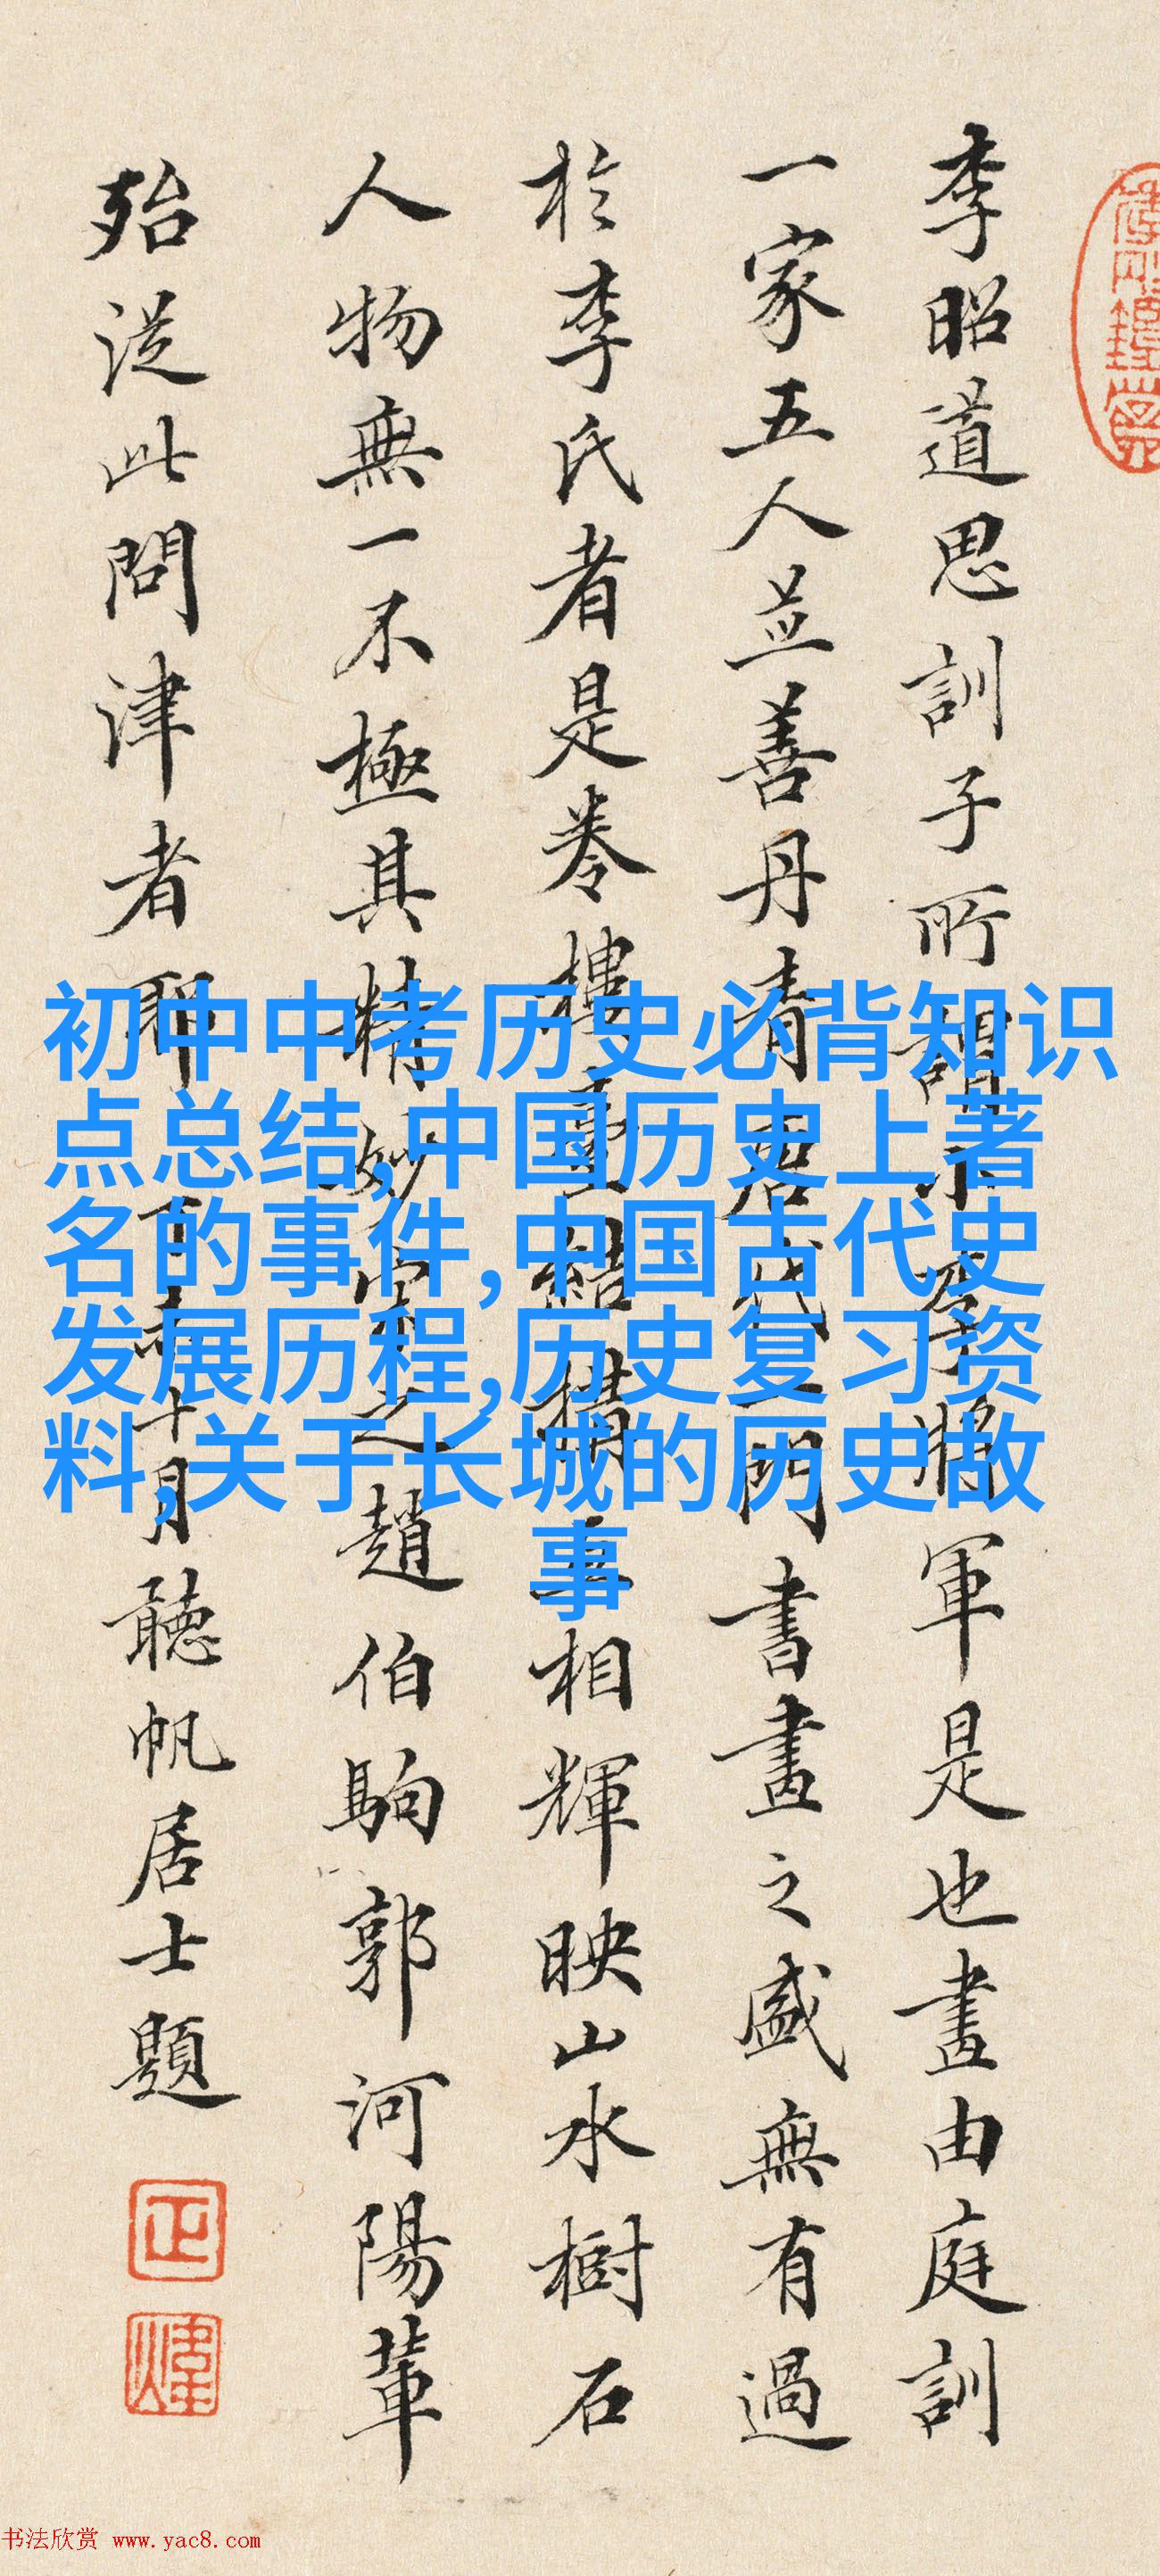 李昭道思訓子所謂小李將軍是也畫由庭訓
一家五人並善丹青唐代一門書畫之盛無有過
於李氏者是卷樓臺結構互相輝映山水樹石
人物無一不極其精妙宋之趙伯駒郭河陽輩
殆從此問津者耶丁未十月聽帆居士題
正
煒
初中中考历史必背知识
点总结,中国历史上著
名的事件,中国古代史
发展历程,历史复习资
料,关于长城的历史故
事
书法欣赏 www.yac8.com